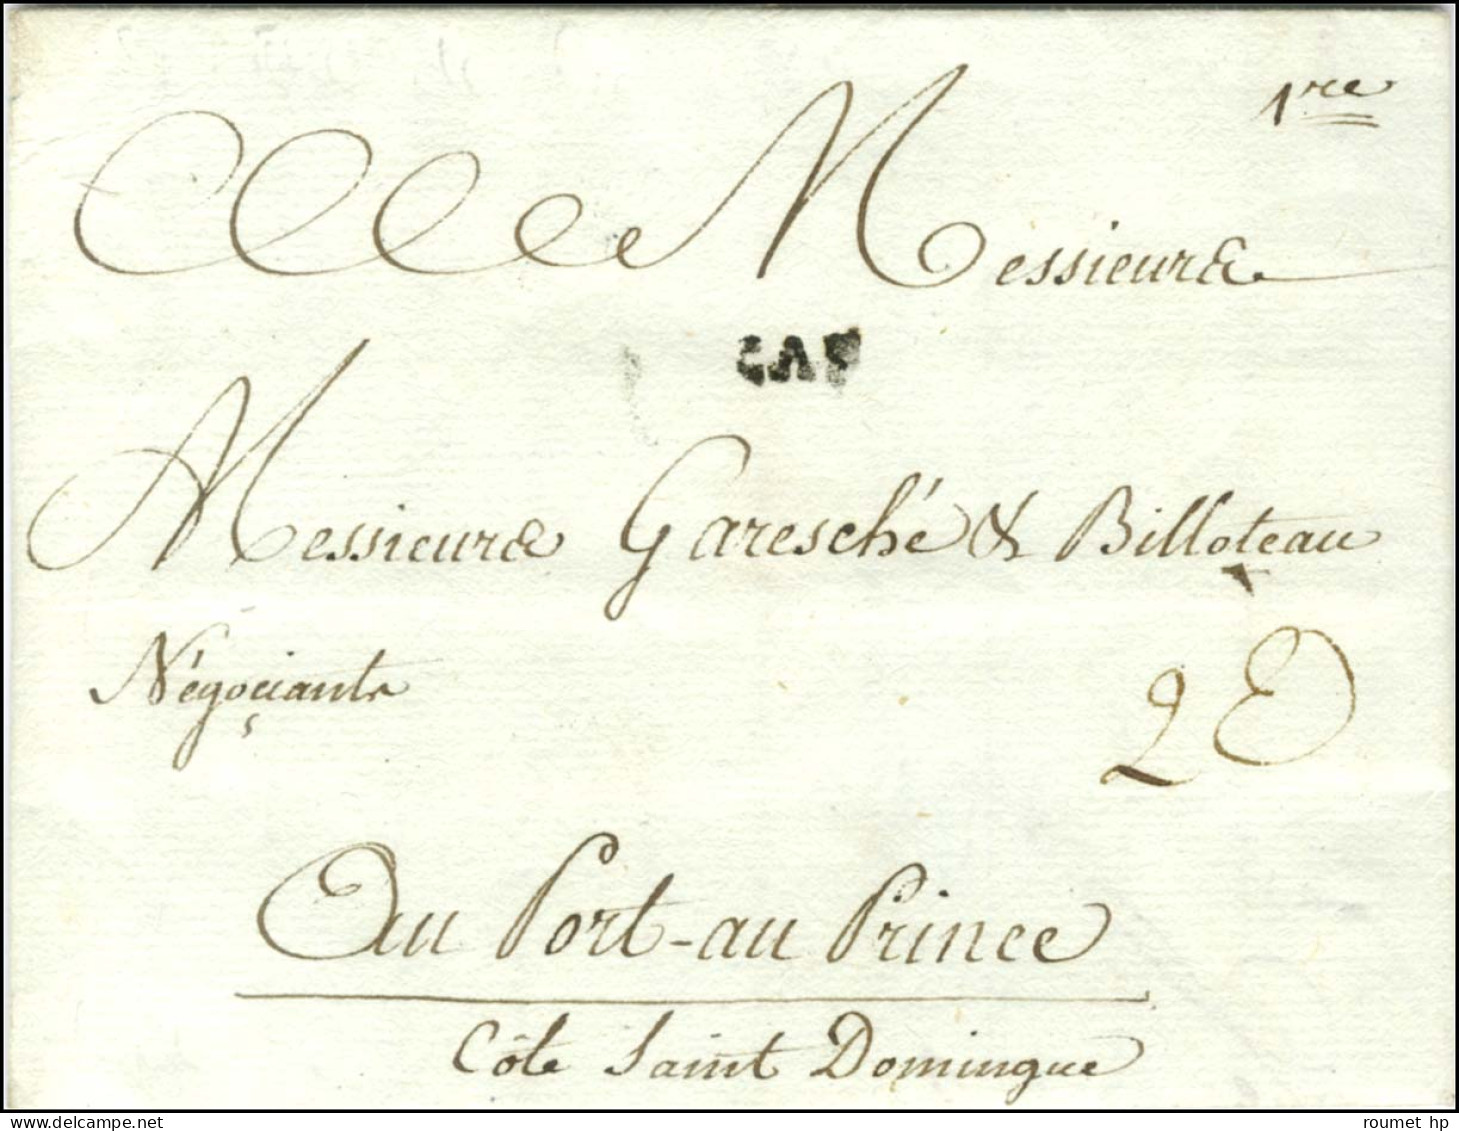 1re
A Messieurs
CAP
Messieurs Garesché & Billoteau
Négoçiants
2 D
Au Port-au Prince
Côte Saint Domingue
roumet hp